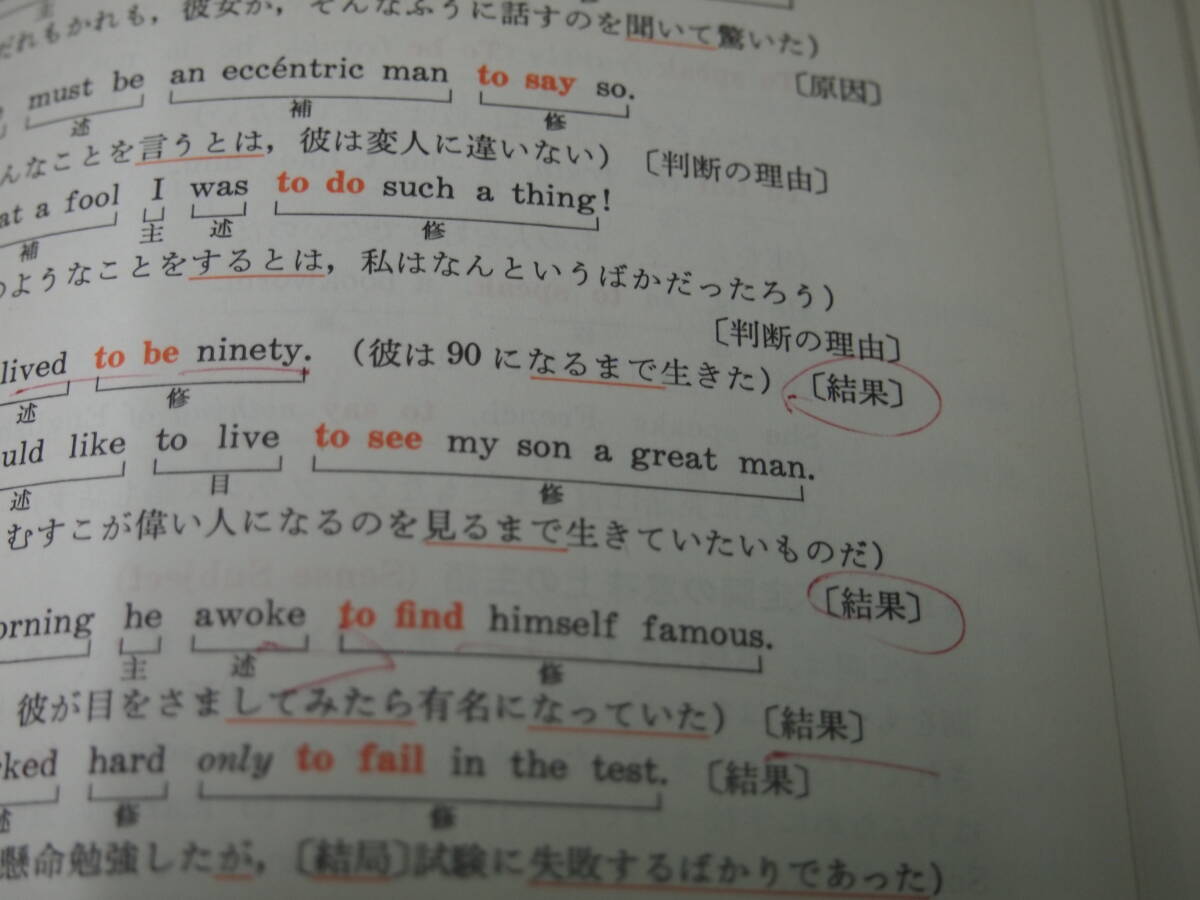 だれもかれも，彼女が，そんなふうに話すのを聞いて驚いた）
〔原因〕
must be an eccéntric man to say so.
述 補 修
んなことを言うとは，彼は変人に違いない）〔判断の理由〕
at a fool I was to do such a thing!
補 主 述 修
のようなことをするとは，私はなんというばかだったろう）
〔判断の理由〕
lived to be ninety. （彼は90になるまで生きた）〔結果〕
述 修
uld like to live to see my son a great man.
述 目 修
むすこが偉い人になるのを見るまで生きていたいものだ）
〔結果〕
orning he awoke to find himself famous.
主 述 修
彼が目をさましてみたら有名になっていた）〔結果〕
ked hard only to fail in the test. 〔結果〕
述 修 修
懸命勉強したが，〔結局〕試験に失敗するばかりであった）